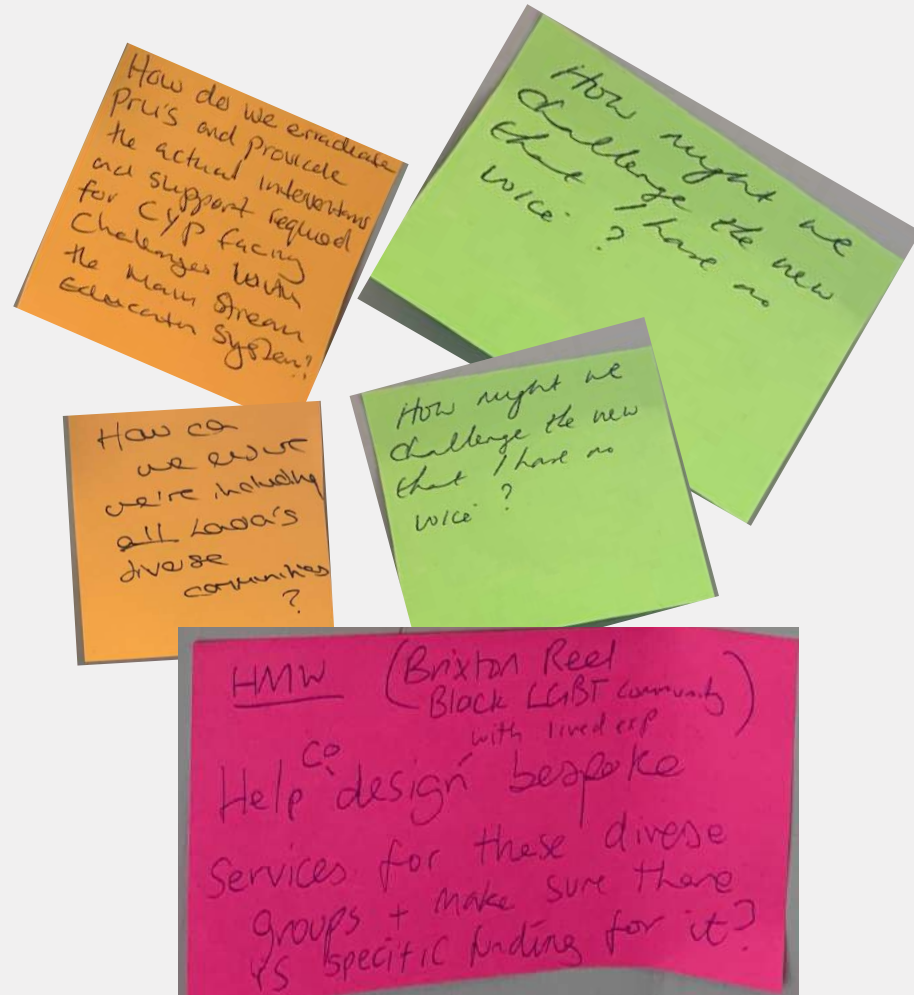 How do we erradicate
PRU's and provide
the actual interventions
and support required
for CYP facing
Challenges with
the Main Stream
Education System?
How might we
challenge the new
that I have no
voice ?
How can
we ensure
we're including
all
diverse
communities
?
How might we
challenge the new
that I have no
voice ?
HMW (Brixton Reel
Black LGBT community)
with lived exp
Help co design bespoke
services for these diverse
groups + make sure there
is specific funding for it?